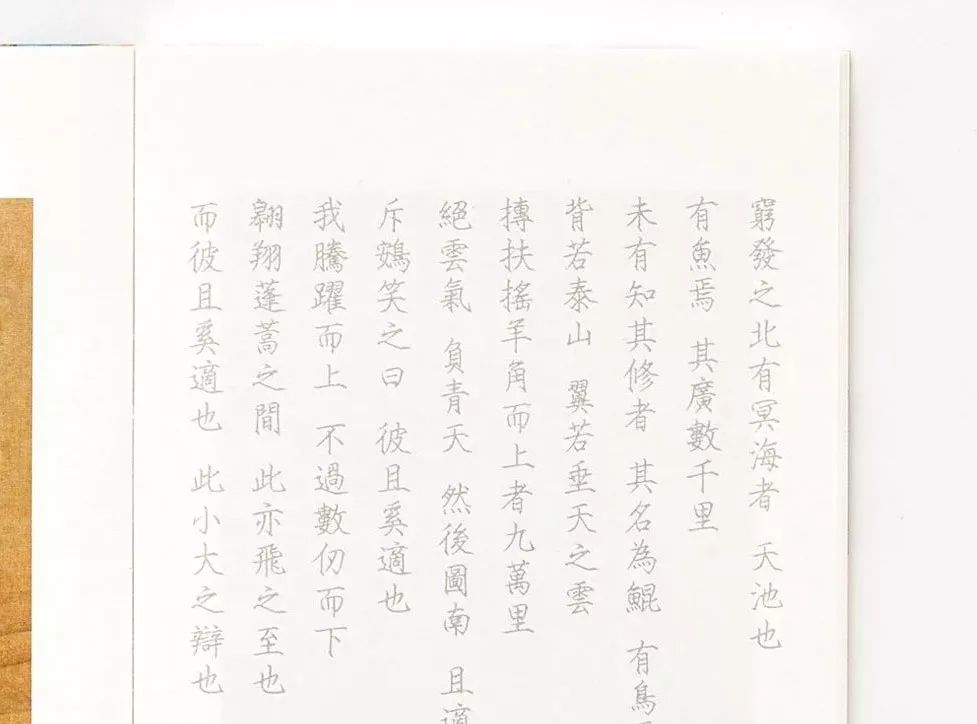 窮發之北有冥海者 天池也
有魚焉 其廣數千里
未有知其修者 其名為鯤 有鳥
背若泰山 翼若垂天之雲
摶扶搖羊角而上者九萬里
絕雲氣 負青天 然後圖南 且適
斥鴳笑之曰 彼且奚適也
我騰躍而上 不過數仞而下
翱翔蓬蒿之間 此亦飛之至也
而彼且奚適也 此小大之辯也